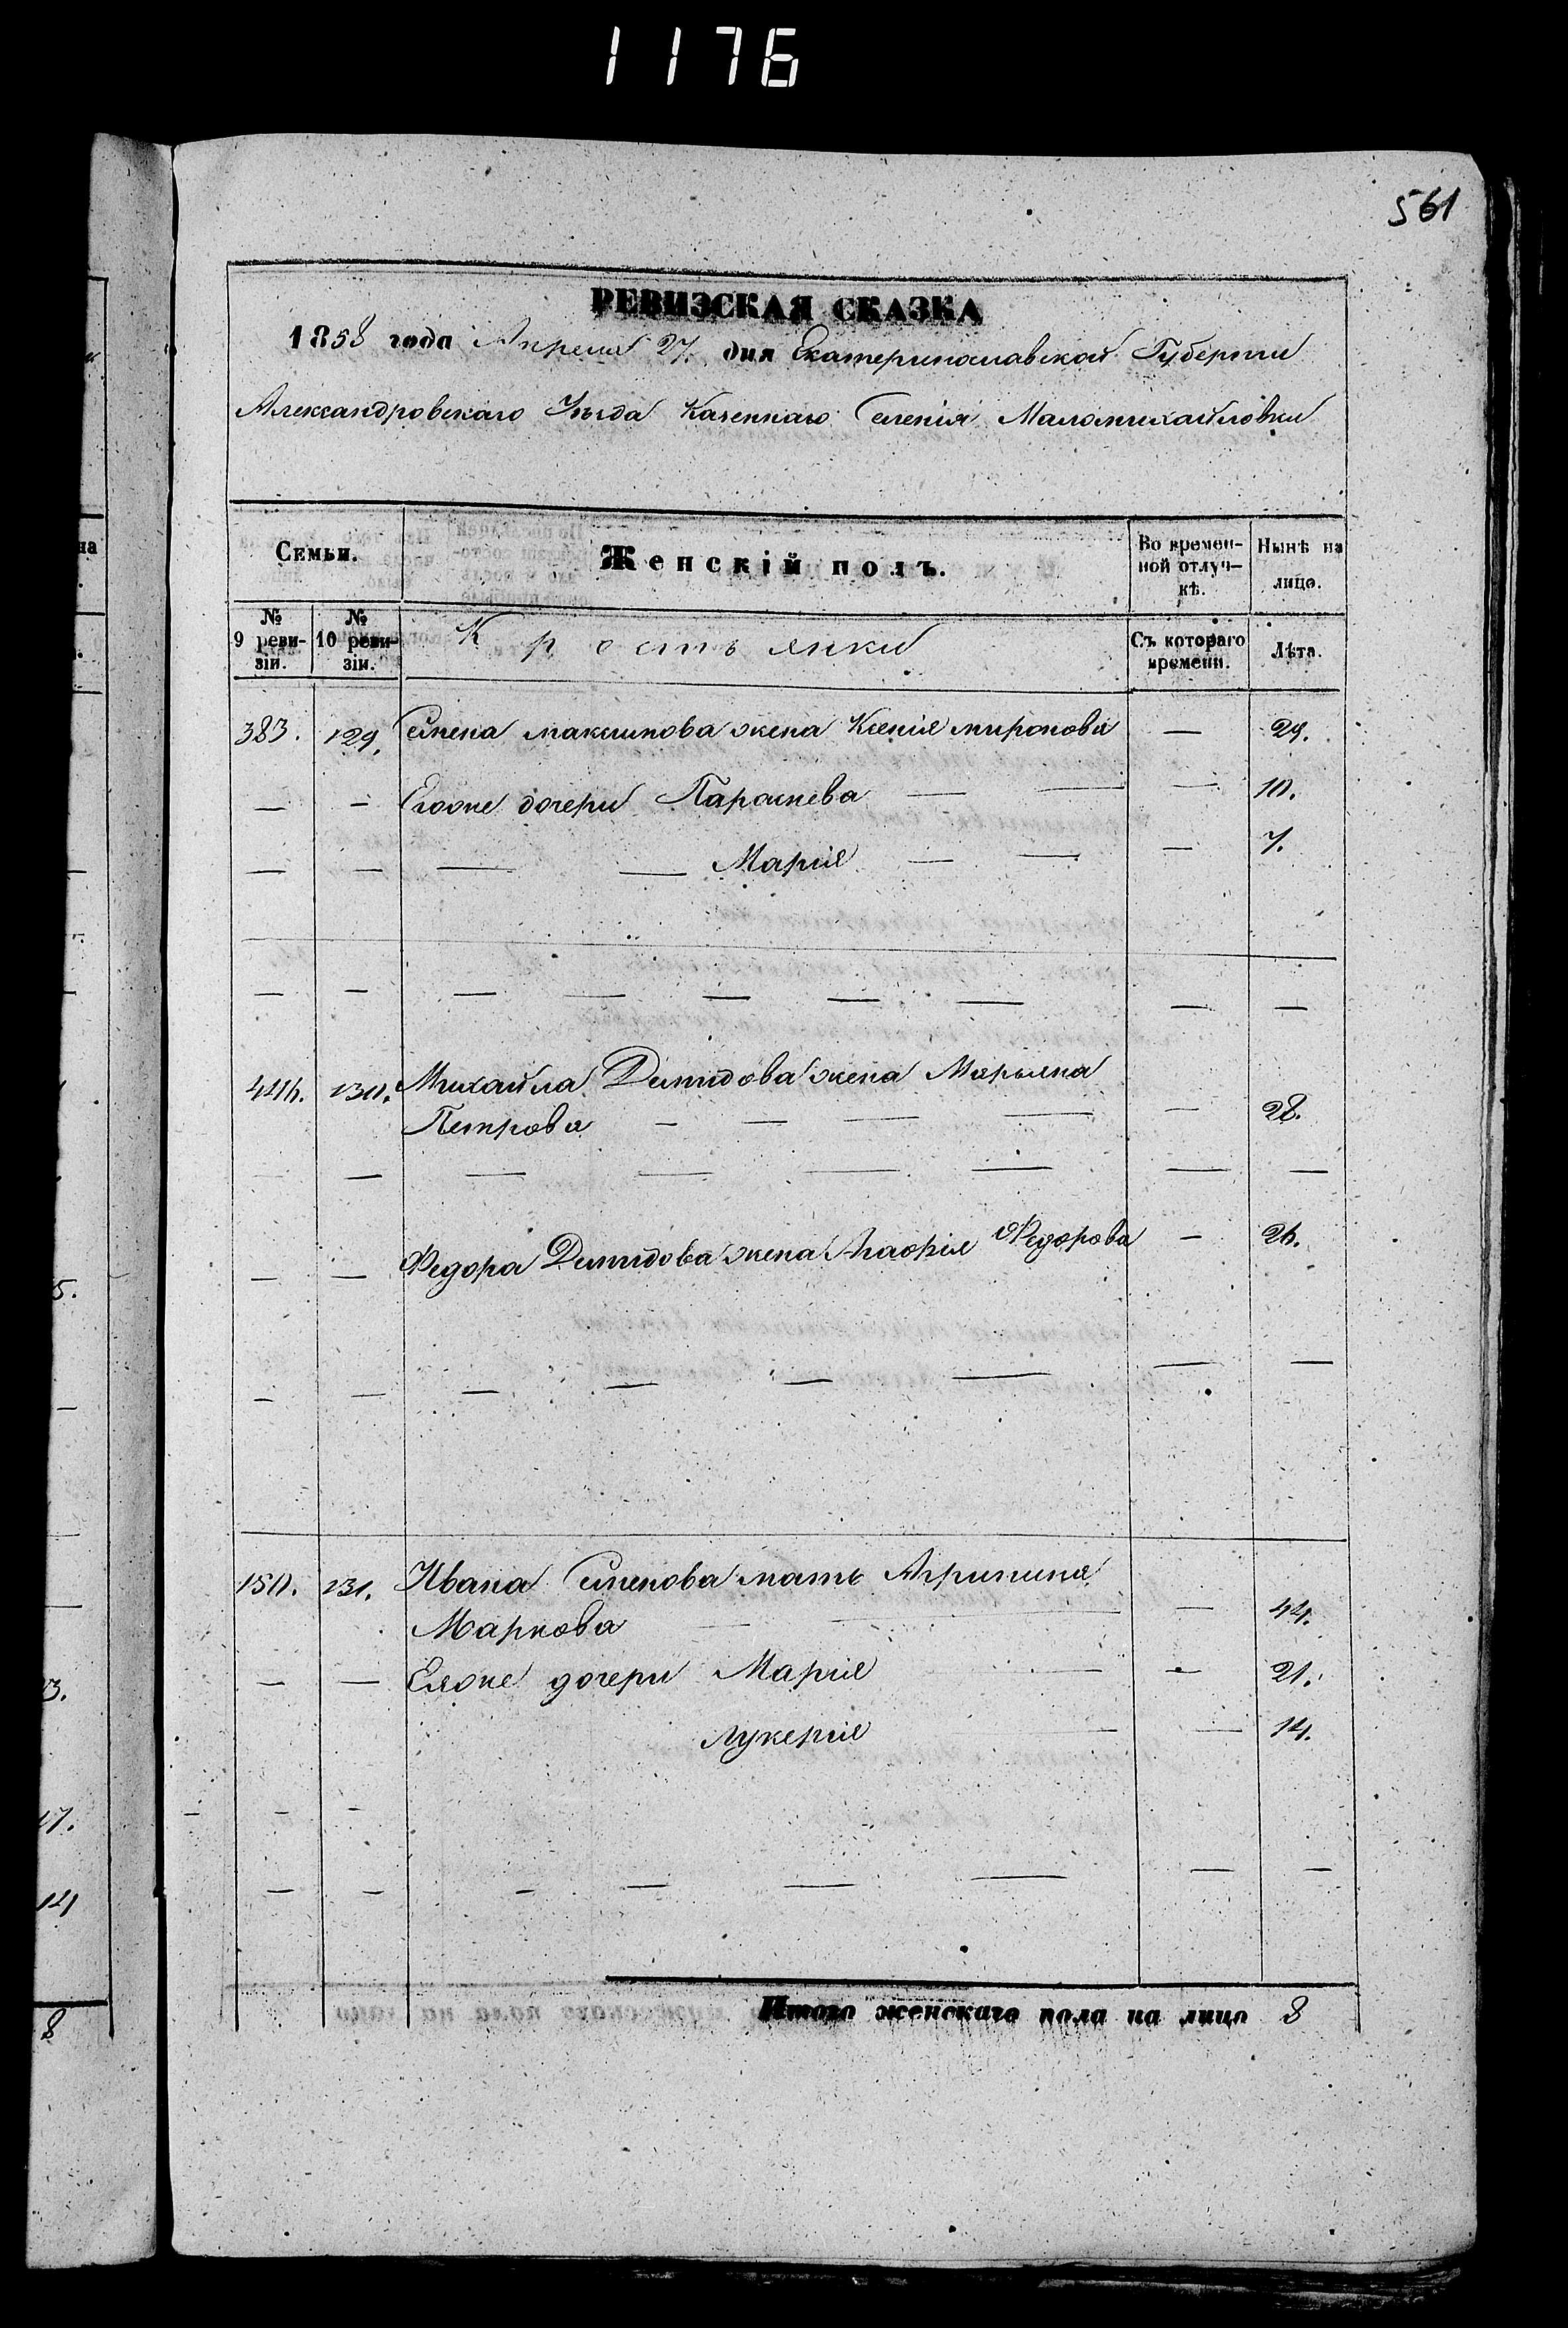 1176
561
РЕВИЗСКАЯ СКАЗКА
1858 года Апреля 27. дня Екатеринославской Губерніи
Александровскаго Уезда Казеннаго Селенія Маломихайловки
Семьи. Женскій полъ. Во времен- Нынѣ на
ной отлуч- лицо.
кѣ.
№ № Крестьянки
9 реви- 10 реви- Съ котораго Лѣта.
зіи. зіи. времени.
383. 129. Семена максимова жена Ксенія миронова — 29.
— — Егоже дочери Параскева — — — 10.
— — — — Марія — — — 7.
— — — — — — — — —
446. 130. Михайла Демидова жена Марьяна
Петрова — — — — — 28.
— — — — — — —
— — Федора Демидова жена Агафія Федорова — 26.
— — — — — — — —
150. 131. Ивана Семенова мать Агрипина
Маркова — — — 44.
— — Еяже дочери Марія — — 21.
Лукерія — — 14.
— — —
— — — — — — — —
Итого женскаго пола на лицо 8
5.
3.
17.
14
8